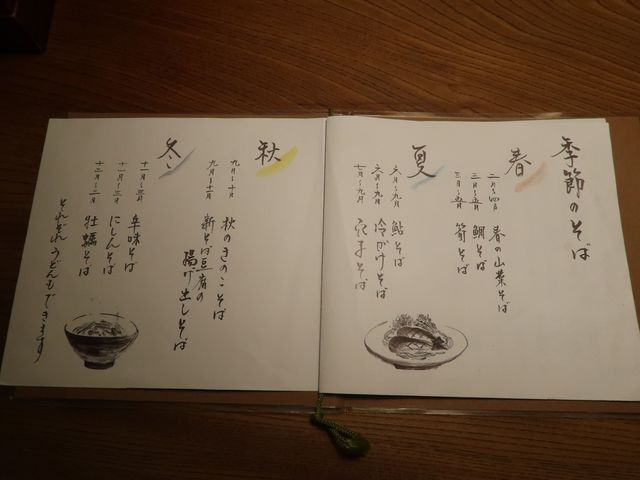 季節のそば
春
二月〜四月 春の山菜そば
三月〜五月 鯛そば
三月〜五月 筍そば
夏
六月〜九月 鮎そば
六月〜九月 冷がけそば
七月〜九月 茄子そば
秋
九月〜十月 秋のきのこそば
九月〜十一月 新そば豆腐の
揚げ出しそば
冬
十一月〜三月 味そば
十一月〜三月 にしんそば
十二月〜二月 牡蠣そば
それぞれうどんもできます